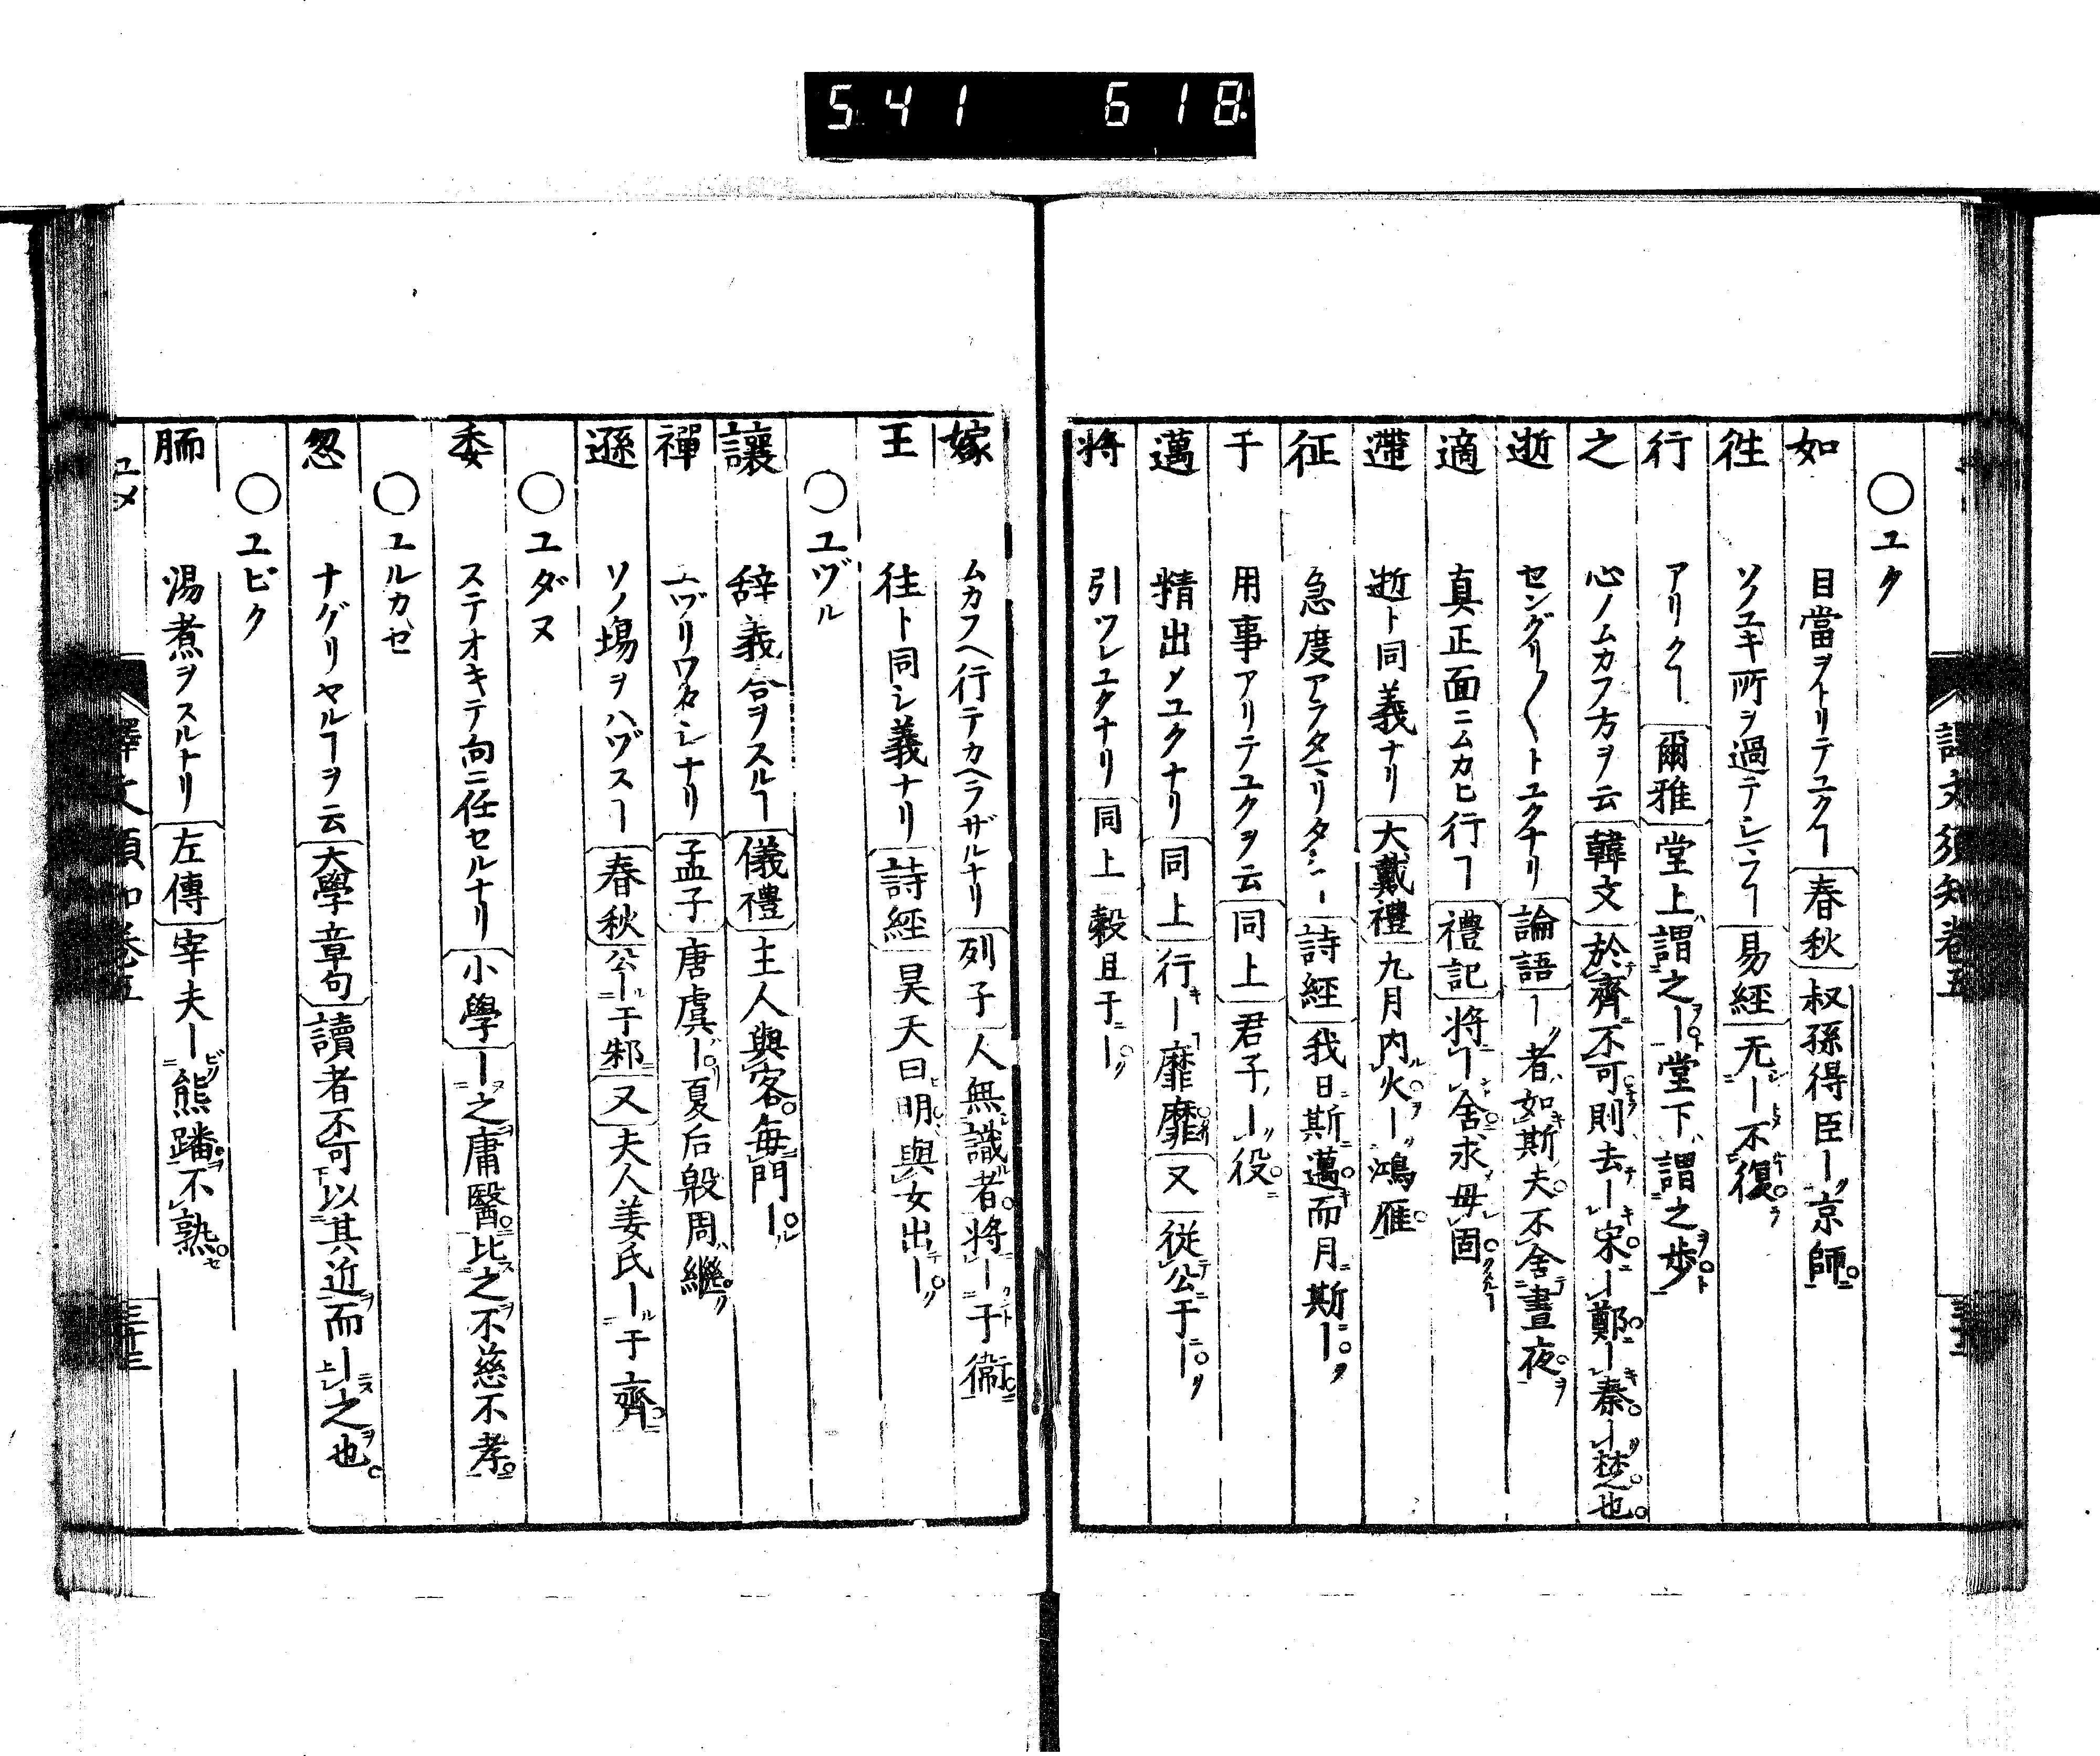 541 618
譯文須知卷五
○ユク
如 目當ヲトリテユクヿ 春秋 叔孫得臣ー京師
徃 ソノユキ所ヲ過テシマフヿ 易經 无ー不復
行 アリクヿ 爾雅 堂上謂之ー堂下謂之歩
之 心ノムカフ方ヲ云 韓文 於齊不可則去ー宋ー鄭ー秦ー楚也
逝 センクリ〱トユクナリ 論語 ー者如斯夫不舍晝夜
適 真正面ニムカヒ行ヿ 禮記 將ー舍求毋固
遰 逝ト同義ナリ 大戴禮 九月内火ー鴻雁
征 急度アラタマリタシー 詩經 我日斯邁而月斯ー
于 用事アリテユクヲ云 同上 君子ー役
邁 精出シユクナリ 同上 行ー靡靡 又 從公于ー
將 引ツレユクナリ 同上 穀且于ー
嫁 ムカフヘ行テカヘラザルナリ 列子 人無識者將ー于衞
王 往ト同シ義ナリ 詩經 昊天曰明與女出ー
○ユヅル
讓 辞義合ヲスルヿ 儀禮 主人與客毎門ー
禪 ユヅリワタシナリ 孟子 唐虞ー夏后殷周繼
遜 ソノ塲ヲハヅスヿ 春秋 公ー于邾 又 夫人姜氏ー于齊
○ユダヌ
委 ステオキテ向ニ任セルナリ 小學 ー之庸醫比之不慈不孝
○ユルカセ
忽 ナゲリヤルヿヲ云 大學章句 讀者不可以其近而ー之也
○ユビク
胹 湯煮ヲスルトリ 左傳 宰夫ー熊蹯不熟
ユメ 譯文須知卷五 三十三